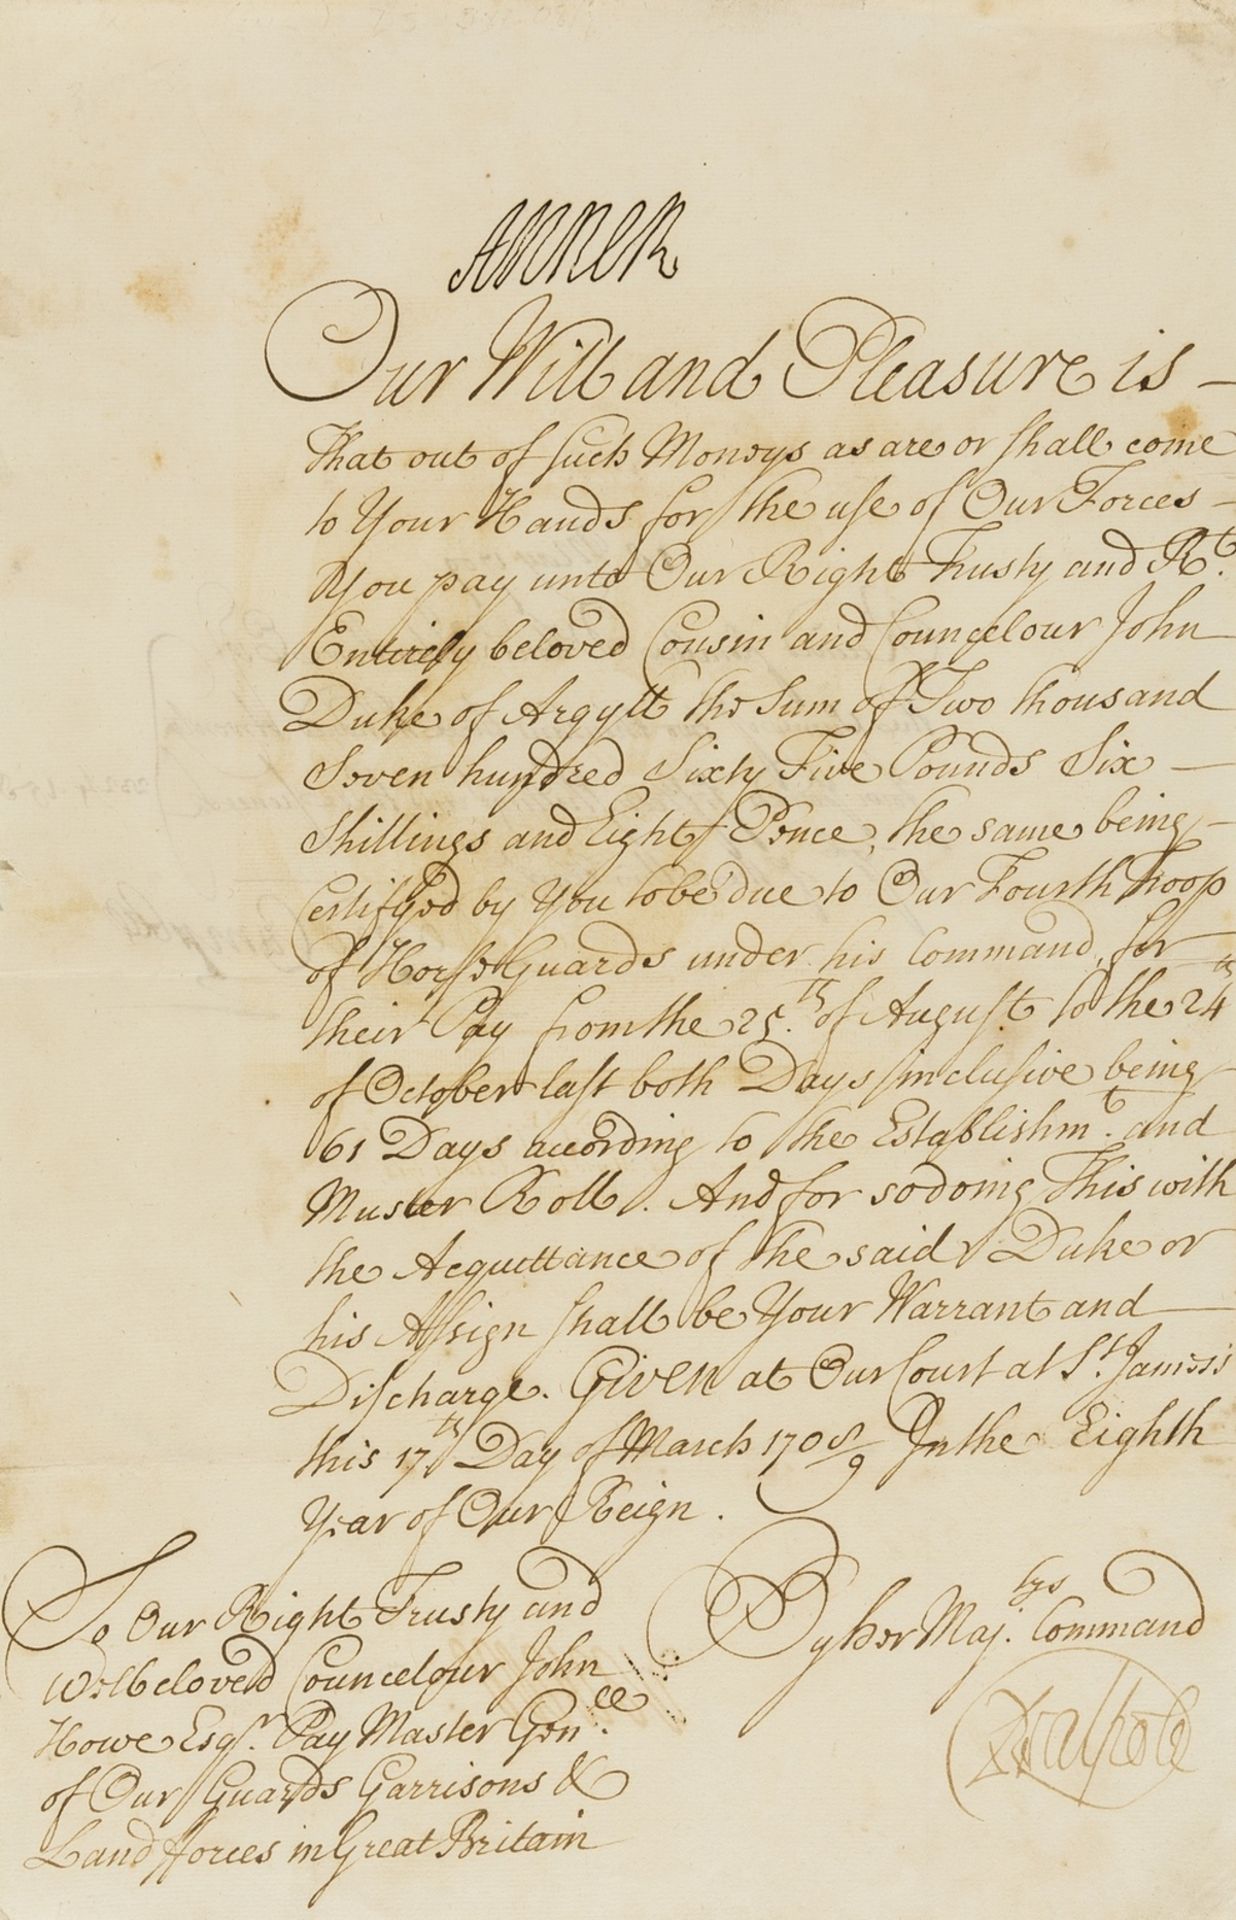 Anne R
Our Will and Pleasure is –
That out of such Moneys as are or shall come
to Your Hands for the use of Our Forces –
You pay unto Our Right Trusty and Rt.
Entirely beloved Cousin and Councelour John
Duke of Argyll the Sum of Two thousand
Seven hundred Sixty Five Pounds Six –
Shillings and Eight Pence, the same being –
Certifyed by You to be due to Our Fourth Troop
of Horse Guards under his Command, for
their Pay from the 25.th of August to the 24th
of October last both Days inclusive being
61 Days according to the Establishm.t and
Muster Roll. And for so doing This with
the Acquittance of the said Duke or
his Assign shall be Your Warrant and —
Discharge. Given at Our Court at St. James's
this 17th Day of March 1708/9 In the Eighth
Year of Our Reign.
To Our Right Trusty and
Welbeloved Councelour John
Howe Esqr. Pay Master Gen.ll
of Our Guards Garrisons &
Land fforces in Great Britain
By Her Maj.tys Command
R Walpole